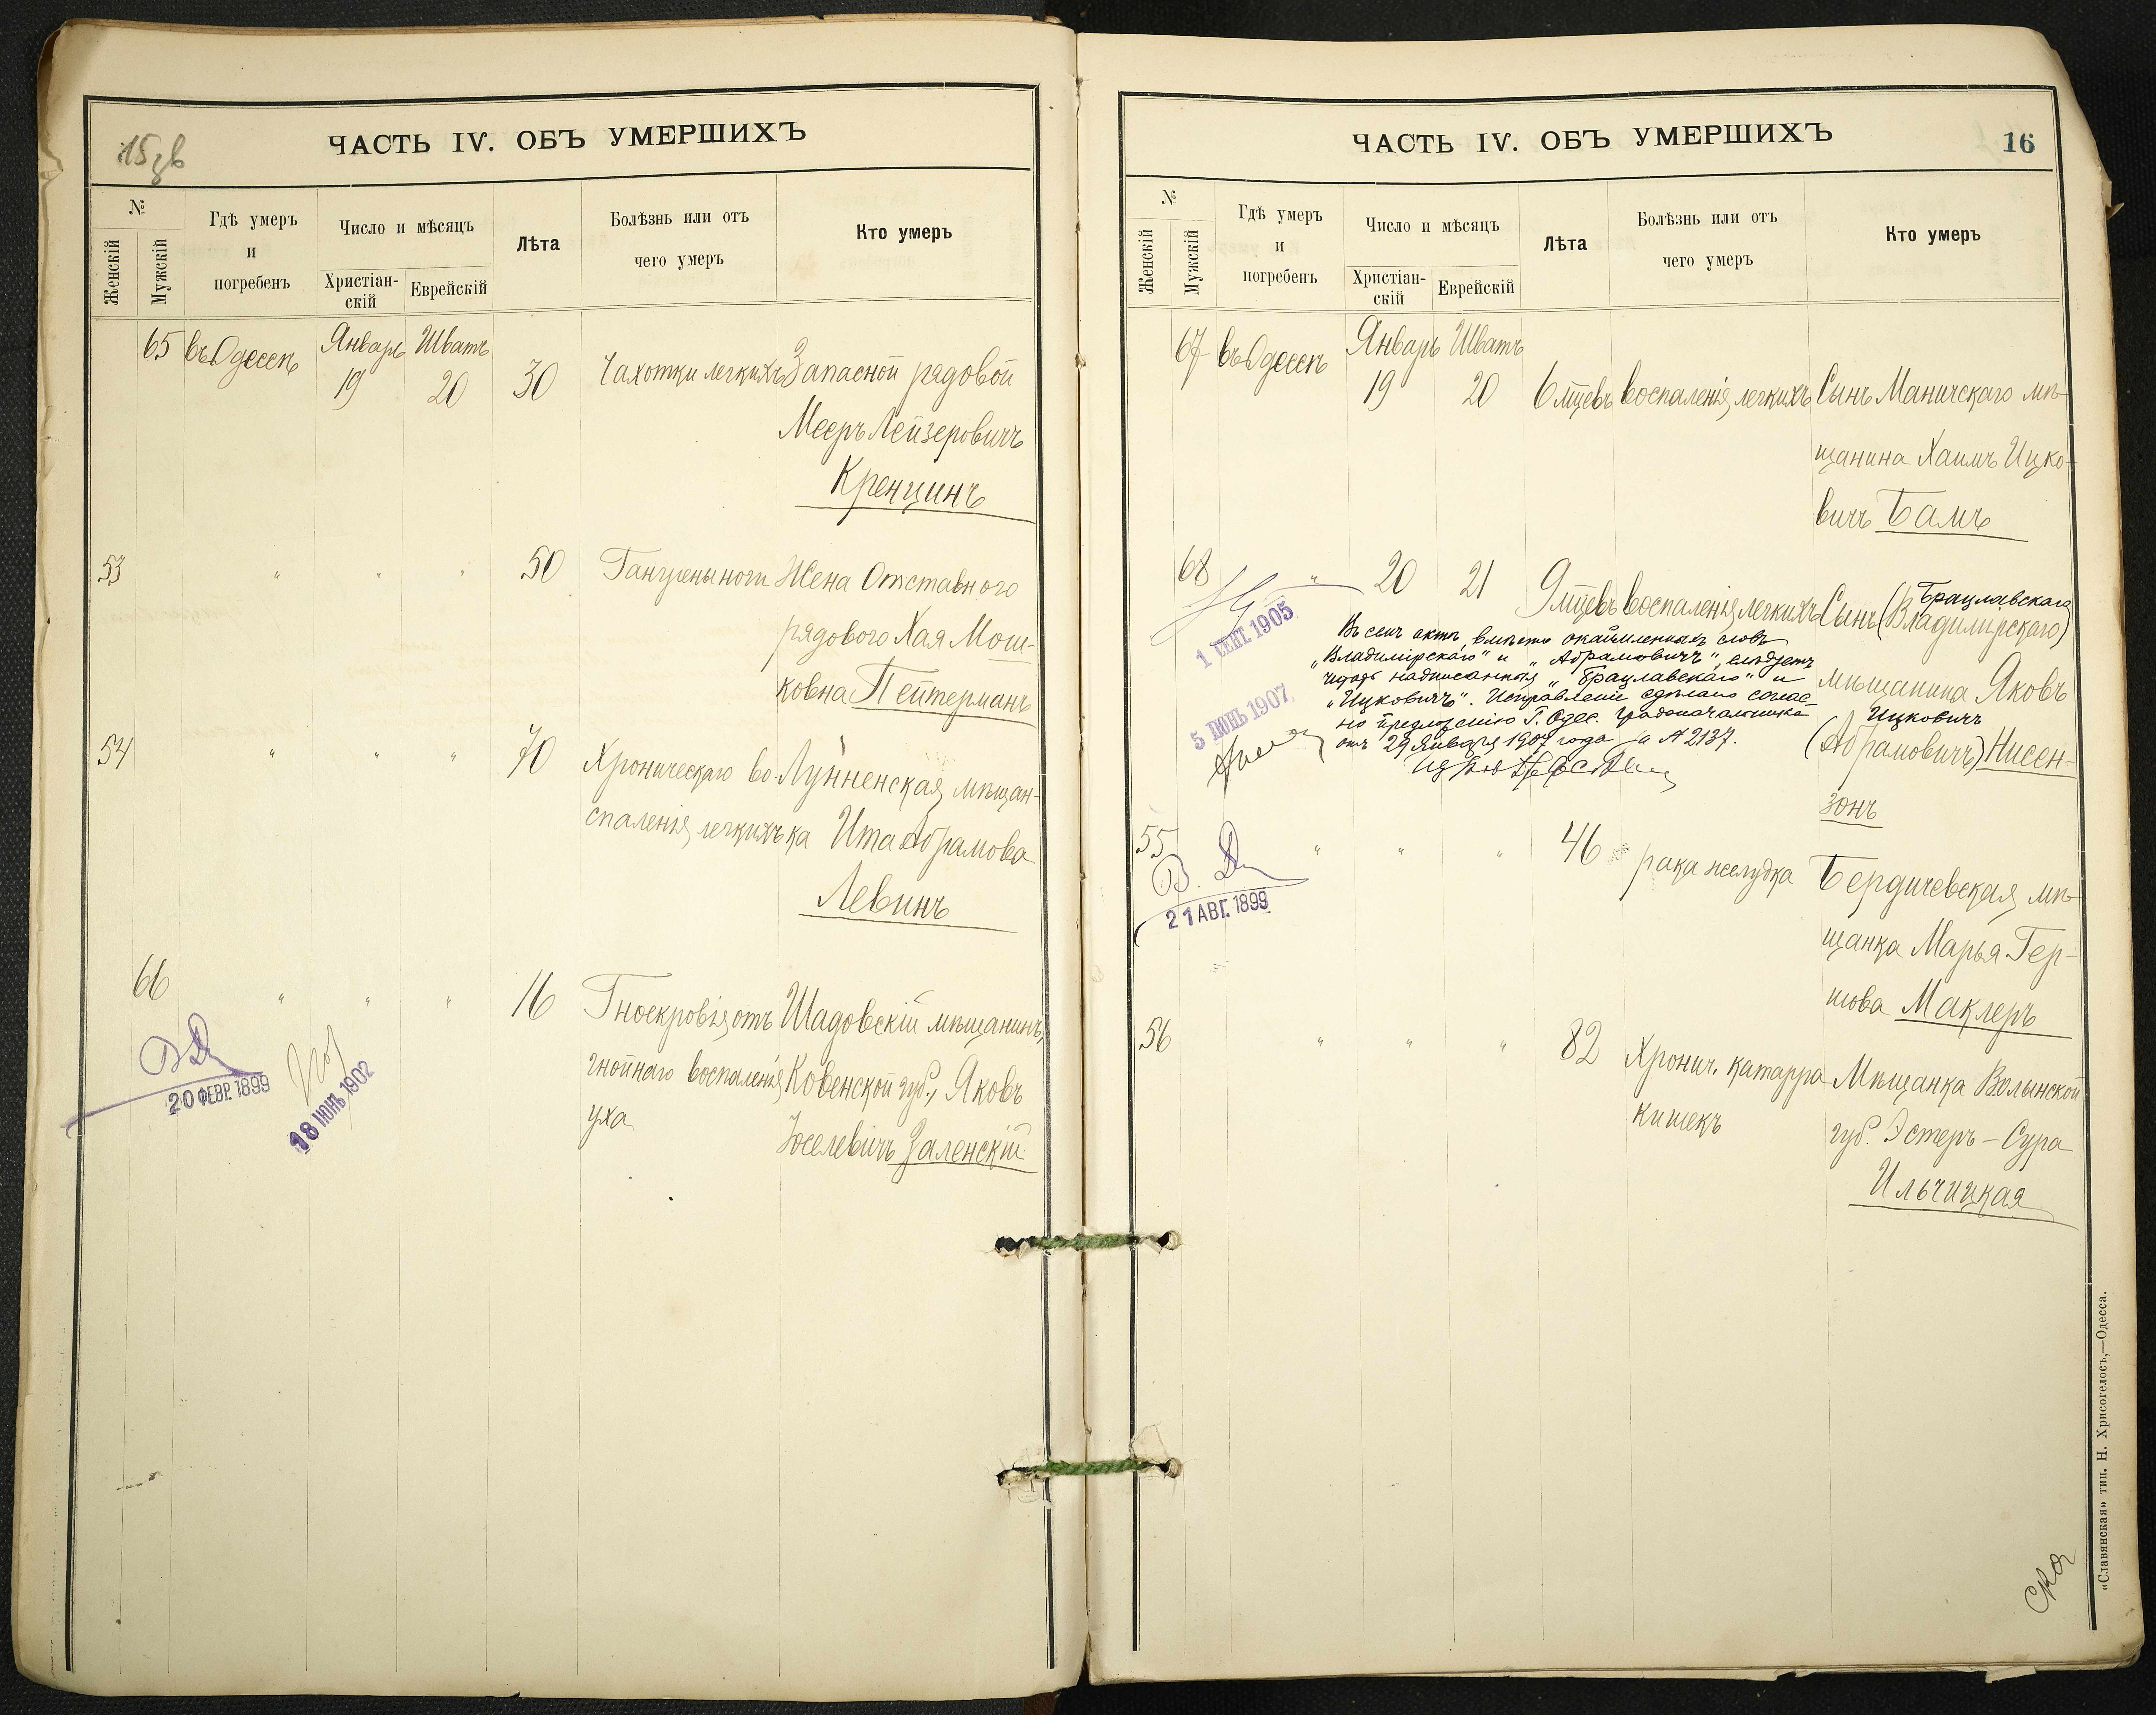 15 об
ЧАСТЬ IV. ОБЪ УМЕРШИХЪ
№
Женскій
Мужскій
Гдѣ умеръ
и
погребенъ
Число и мѣсяцъ
Христіан-
скій
Еврейскій
Лѣта
Болѣзнь или отъ
чего умеръ
Кто умеръ
65 въ Одессѣ Январь 19 Шватъ 20 30 Чахотки легкихъ Запасной рядовой
Мееръ Лейзеровичъ
Кренцинъ
53 " " " 50 Гангрены ноги Жена Отставного
рядового Хая Мош-
ковна Пейтерманъ
54 " " " 70 Хроническаго во- Лунненская мѣщан-
спаленія легкихъ ка Ита Абрамова
Левинъ
66 " " " 16 Гноекровія отъ Шадовскій мѣщанинъ,
гнойнаго воспаленія Ковенской губ., Яковъ
уха Іоселевичъ Заленскій
20 ФЕВР. 1899
18 ІЮНЬ 1902
ЧАСТЬ IV. ОБЪ УМЕРШИХЪ
16
№
Женскій
Мужскій
Гдѣ умеръ
и
погребенъ
Число и мѣсяцъ
Христіан-
скій
Еврейскій
Лѣта
Болѣзнь или отъ
чего умеръ
Кто умеръ
67 въ Одессѣ Январь 19 Шватъ 20 6 мѣцевъ воспаленія легкихъ Сынъ Маничскаго мѣ-
щанина Хаимъ Ицко-
вичъ Бамъ
68 " 20 21 9 мѣцевъ воспаленія легкихъ Сынъ (Владимірскаго)
Брацлавскаго
мѣщанина Яковъ
Ицковичъ
(Абрамовичъ) Нисен-
зонъ
1 СЕНТ. 1905
5 ІЮНЬ 1907
Въ семъ актѣ вмѣсто окаймленныхъ словъ
„Владимірскаго" и „Абрамовичъ", слѣдуетъ
читать надписанныя „Брацлавскаго" и
„Ицковичъ". Исправленіе сдѣлано соглас-
но предложенію Г. Одес. Градоначальника
отъ 29 Января 1907 года за № 2137.
55 " " " 46 рака желудка Бердичевская мѣ-
щанка Марья Гер-
шова Маклеръ
21 АВГ. 1899
56 " " " 82 Хронич. катарра Мѣщанка Волынской
кишекъ губ. Эстеръ-Сура
Ильчицкая
«Славянская» тип. Н. Хрисогелосъ,—Одесса.